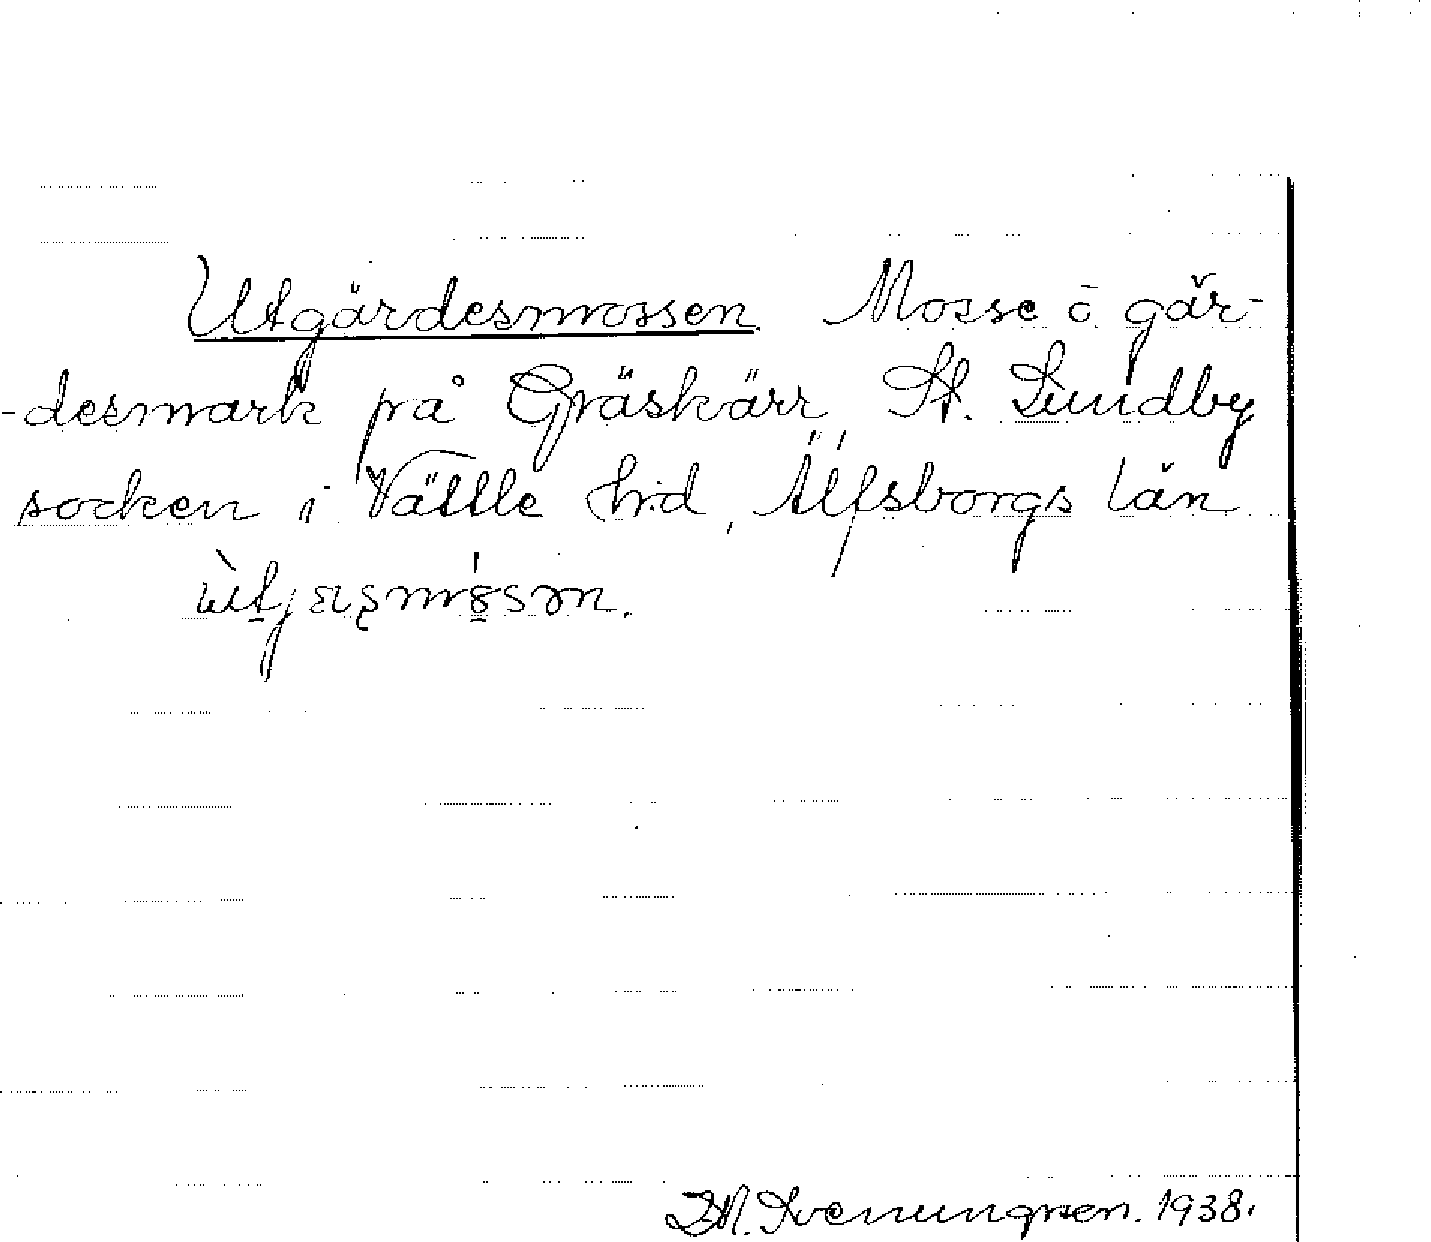 Utgärdesmossen Mosse o gär-
-desmark på Gräskärr, St. Lundby
socken i Vättle hrd, Älfsborgs län
Svenungsen. 1938.